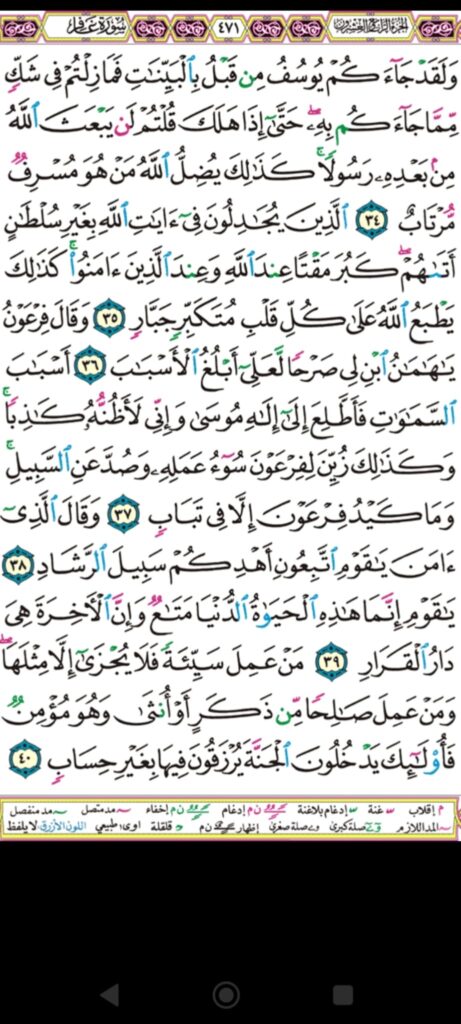 الجزء الرابع والعشرون ٤٧١ سورة غافر
وَلَقَدْ جَآءَكُمْ يُوسُفُ مِن قَبْلُ بِٱلْبَيِّنَٰتِ فَمَا زِلْتُمْ فِى شَكٍّ
مِّمَّا جَآءَكُم بِهِۦ حَتَّىٰٓ إِذَا هَلَكَ قُلْتُمْ لَن يَبْعَثَ ٱللَّهُ
مِنۢ بَعْدِهِۦ رَسُولًا ۚ كَذَٰلِكَ يُضِلُّ ٱللَّهُ مَنْ هُوَ مُسْرِفٌ
مُّرْتَابٌ ٣٤ ٱلَّذِينَ يُجَٰدِلُونَ فِىٓ ءَايَٰتِ ٱللَّهِ بِغَيْرِ سُلْطَٰنٍ
أَتَىٰهُمْ ۖ كَبُرَ مَقْتًا عِندَ ٱللَّهِ وَعِندَ ٱلَّذِينَ ءَامَنُوا۟ ۚ كَذَٰلِكَ
يَطْبَعُ ٱللَّهُ عَلَىٰ كُلِّ قَلْبِ مُتَكَبِّرٍ جَبَّارٍ ٣٥ وَقَالَ فِرْعَوْنُ
يَٰهَٰمَٰنُ ٱبْنِ لِى صَرْحًا لَّعَلِّىٓ أَبْلُغُ ٱلْأَسْبَٰبَ ٣٦ أَسْبَٰبَ
ٱلسَّمَٰوَٰتِ فَأَطَّلِعَ إِلَىٰٓ إِلَٰهِ مُوسَىٰ وَإِنِّى لَأَظُنُّهُۥ كَٰذِبًا ۚ
وَكَذَٰلِكَ زُيِّنَ لِفِرْعَوْنَ سُوٓءُ عَمَلِهِۦ وَصُدَّ عَنِ ٱلسَّبِيلِ ۚ
وَمَا كَيْدُ فِرْعَوْنَ إِلَّا فِى تَبَابٍ ٣٧ وَقَالَ ٱلَّذِىٓ
ءَامَنَ يَٰقَوْمِ ٱتَّبِعُونِ أَهْدِكُمْ سَبِيلَ ٱلرَّشَادِ ٣٨
يَٰقَوْمِ إِنَّمَا هَٰذِهِ ٱلْحَيَوٰةُ ٱلدُّنْيَا مَتَٰعٌ وَإِنَّ ٱلْءَاخِرَةَ هِىَ
دَارُ ٱلْقَرَارِ ٣٩ مَنْ عَمِلَ سَيِّئَةً فَلَا يُجْزَىٰٓ إِلَّا مِثْلَهَا ۖ
وَمَنْ عَمِلَ صَٰلِحًا مِّن ذَكَرٍ أَوْ أُنثَىٰ وَهُوَ مُؤْمِنٌ
فَأُو۟لَٰٓئِكَ يَدْخُلُونَ ٱلْجَنَّةَ يُرْزَقُونَ فِيهَا بِغَيْرِ حِسَابٍ ٤٠
م إقلاب غنة إدغام بلاغنة ن م إدغام ن م إخفاء مد متصل مد منفصل
المد اللازم صلة كبرى صلة صغرى إظهار ن م قلقلة اوى: طبيعي اللون الأزرق: لا يلفظ